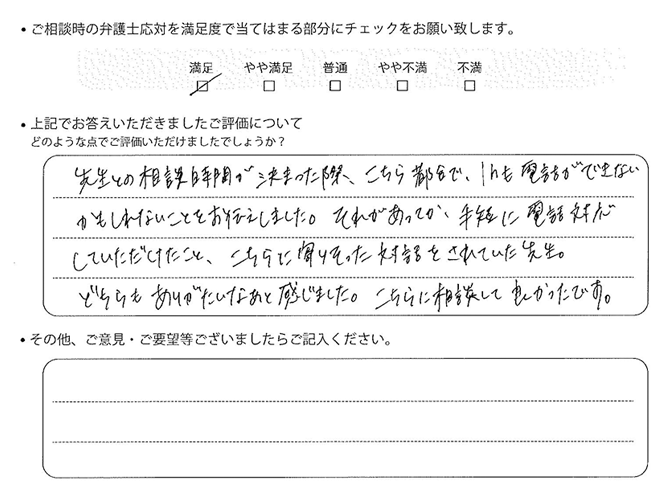 ・ご相談時の弁護士応対を満足度で当てはまる部分にチェックをお願い致します。
満足 やや満足 普通 やや不満 不満
・上記でお答えいただきましたご評価について
どのような点でご評価いただけましたでしょうか？
先生との相談時間が決まった際、こちら都合で、1hも電話ができない
かもしれないことをお伝えしました。それがあってか、手短に電話対応
していただけたこと、こちらに寄りそった対話をされていた先生。
どちらもありがたいなあと感じました。こちらに相談して良かったです。
・その他、ご意見・ご要望等ございましたらご記入ください。